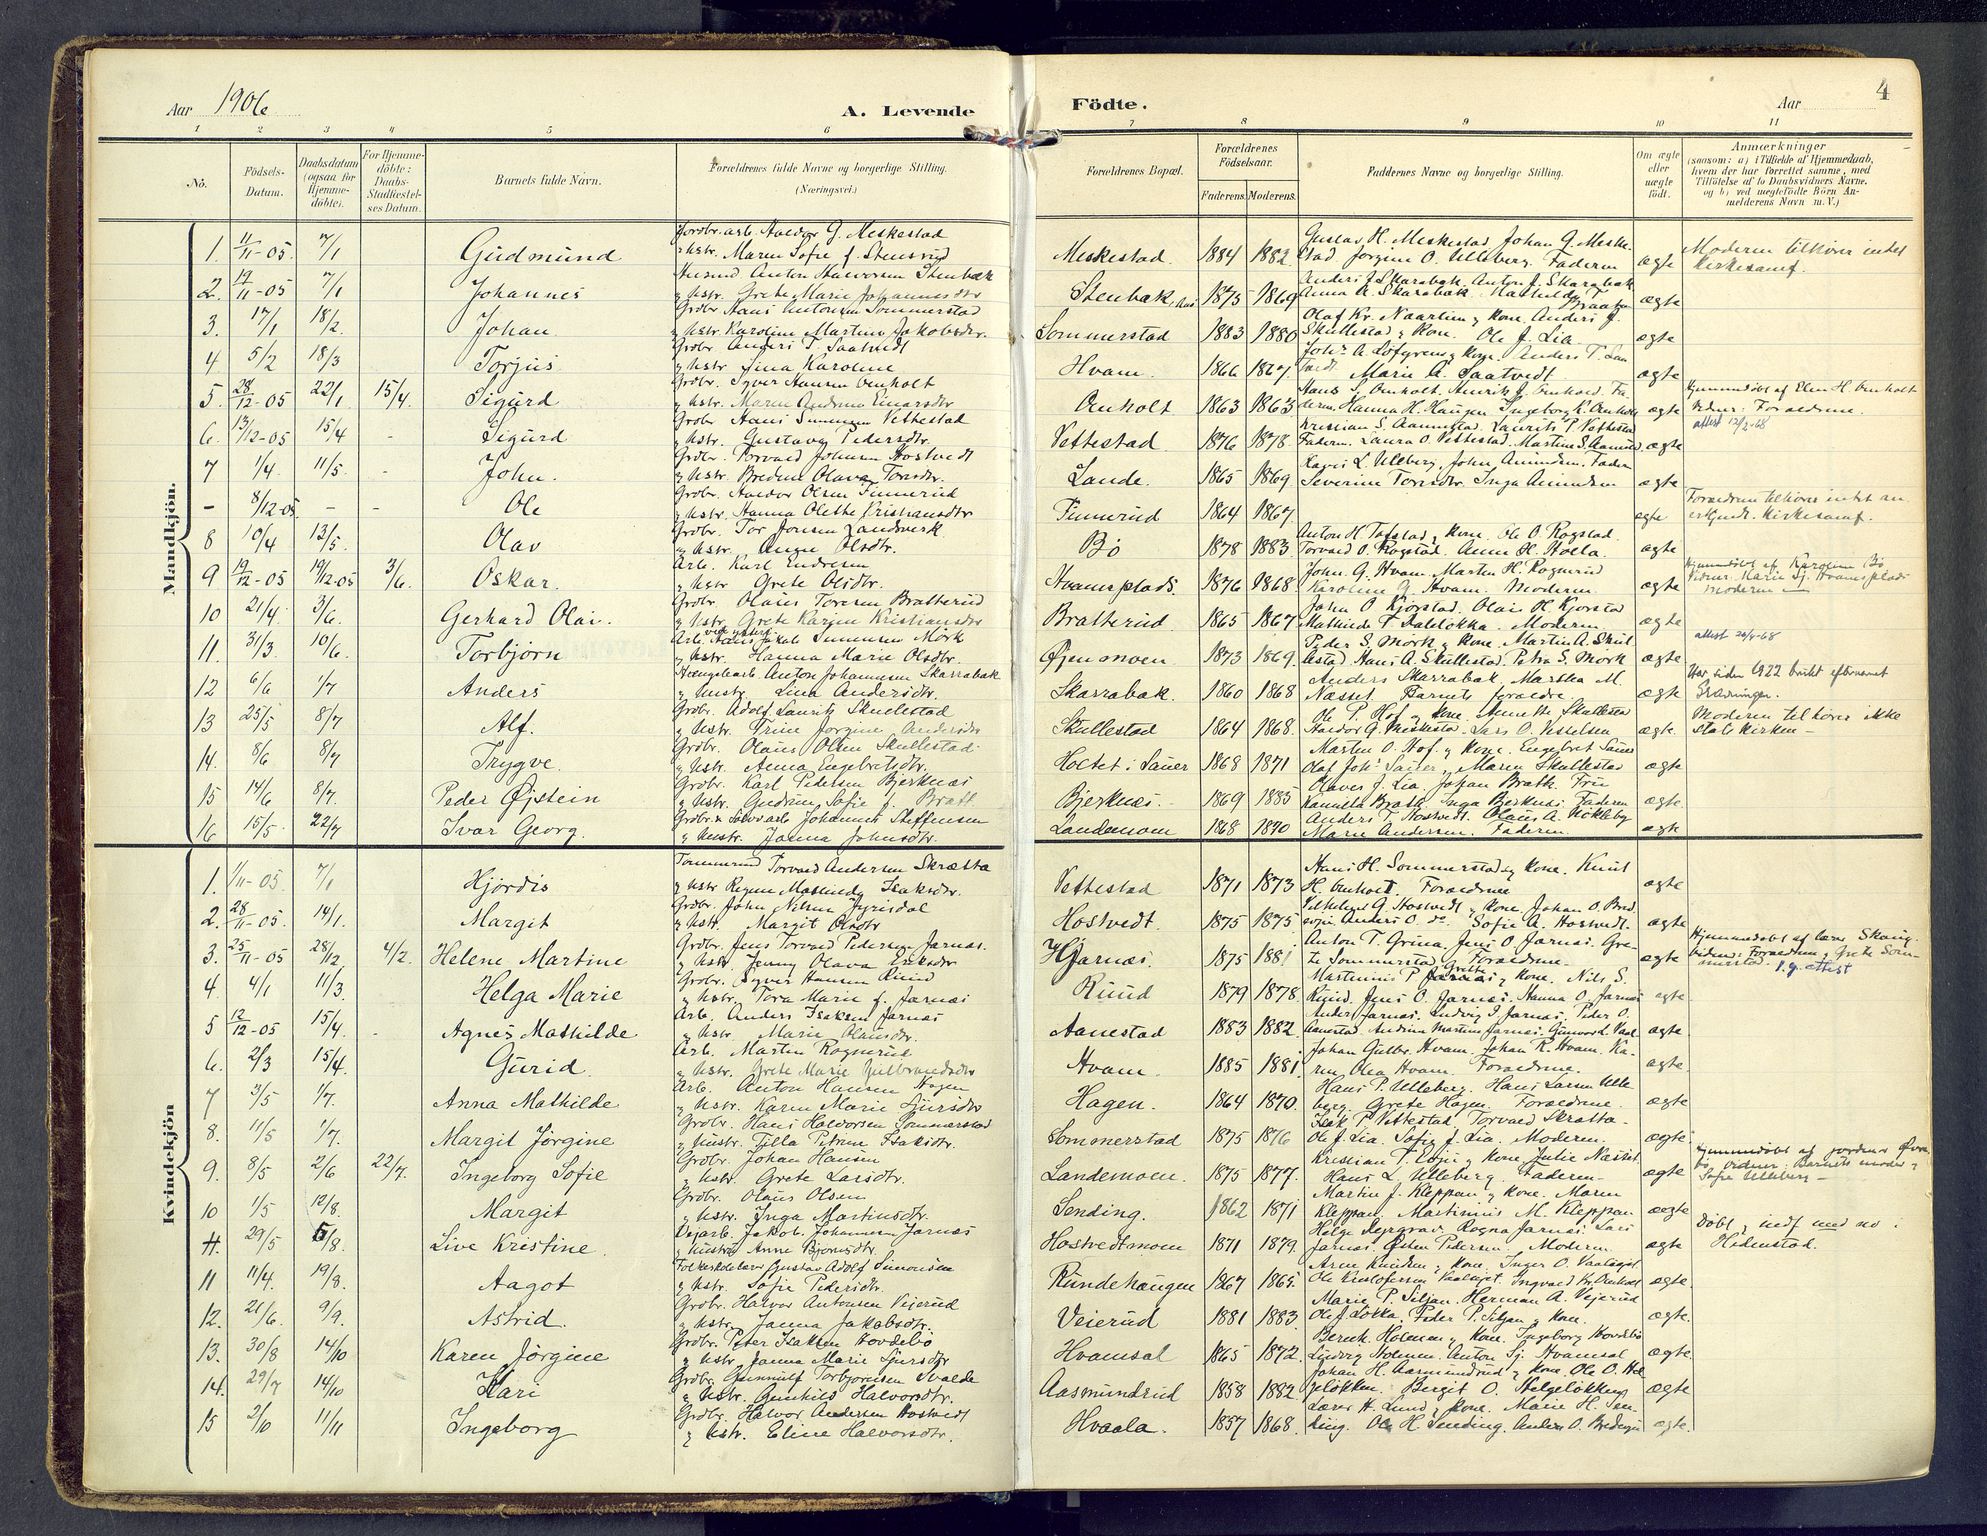 Aar 1906
A. Levende
Födte.
Aar
4
1 2 3 4 5 6 7 8 9 10 11
No.
Födsels-Datum.
Daabsdatum (ogsaa for Hjemme-döbte).
For Hjemme-döbte: Daabs-Stadfæstel-ses Datum.
Barnets fulde Navn.
Forældrenes fulde Navne og borgerlige Stilling. (Næringsvei.)
Forældrenes Bopæl.
Forældrenes Födselsaar.
Faderens. Moderens.
Faddernes Navne og borgerlige Stilling.
Om ægte eller uægte födt.
Anmærkninger
(saasom: a) i Tilfælde af Hjemmedaab, hvem der har forrettet samme, med Tilföielse af to Daabsvidners Navne, og b) ved uegtefödte Börn An-melderens Navn m. V.)
Mandkjön.
1. 11/11-05. 7/1 Gudmund Jordbr. arb. Halvor G. Meskestad Hstr. Maren Sofie f. Stensrud Meskestad. 1884 1882. Gustav H. Meskestad, Johan G. Meske-stad Jörgine O. Ulleberg. Faderen ægte Moderen tilhører intet Kirkesamf.
2. 19/11-05 7/1 Johannes Anton Halvorsen Stenbæk Hstr. Grete Marie Johannesdtr Stenbæk 1875 1869 Anders J. Skarabæk. Anton J. Skarabæk Anna A. Skarabæk. ægte
3. 17/1 18/2. Johan Grdbr Hans Antonsen Sommerstad Hstr. Karoline Martine Jakobsdtr. Sommerstad 1883 1880 Olaf Kr. Naarlien, kone. Anders J. Skullestad, kone Ole J. Lia. ægte
4 5/2 18/3 Torjus Grdbr. Anders T. Saatvedt Hstr. Lina Karoline Hvam. 1866 1867 Anders T. Saa-tvedt Marie A. Saatvedt ægte
5. 28/12-05 22/1 15/4. Sigurd Grdbr. Syver Hansen Omholt Hstr. Maren Andrine Einarsdtr Omholt 1863 1863 Hans S. Omholt, Henrik J. Omholt. Fa-deren, Hanna H. Haugen Ingeborg K. Omholt ægte Hjemmedöbt af Elen H. Omholt Vidner: Foreldrene.
6. 13/12-05 15/4 - Sigurd Grdbr Hans Simonsen Vettestad Hstr. Gustava Pedersdtr. Vettestad. 1876 1878. Kristian S. Aamestad, Laurits P. Vettestad Faderen. Laura O. Vettestad. ægte attest 12/2-68
7 1/4. 11/5. - John. Grdbr. Torvald Johnsen Hostvedt Hstr. Bredine Olava Torsdtr. Lande. 1865 1869. Karis L. Ulleberg, John Amundsen. Fader Severine Torsdtr. Inga Amundsen ægte
- 8/12-05. - - Ole Grdbr. Halvor Olsen Finnerud Hstr. Hanna Olette Kristiansdtr Finnerud 1864 1867. ægte Foreldrene tilhører intet an-erkjendt Kirkesamf.
8 10/4 13/5. Olav Grdbr. Tor Jonsen Landsverk Hstr. Anne Olsdtr. Bö 1878 1883 Anton H. Tofstad, kone. Ole O. Rogstad. Torvald O. Rogstad. Anne H. Holla. ægte
9 19/12-05 19/12-05 3/6. Oskar. Arb. Karl Endresen Hstr. Grete Olsdtr. Hvamsplads. 1876 1868 John. G. Hvam. Marten H. Rognerud Karoline G. Hvam. Moderen. ægte Hjemmedöbt af Karoline Bö Vidner: Marie Sj. Hvamsplads Moderen
10 21/4. 3/6. Gerhard Olai. Grdbr. Olaus Toresen Bratterud Hstr. Grete Karine Kristiansdtr Bratterud 1865 1867 John O. Kjörstad. Olaus H. Kjorstad Mathilde T. Dalelökka. Moderen. ægte
11. 31/3. 10/6. Torbjörn Arb. Hans Jakob Simonsen Mörk Hstr. Hanna Marie Olsdtr. Öjenmoen 1873 1869. Peder S. Mörk, kone. Martin A. Skul-lestad. Hans A. Skullestad, Petra S. Mörk ægte attest 20/5-68
12 6/6 1/7 Anders Anton Johannesen Skarrabæk Hustr. Lina Andersdtr. Skarrabæk. 1860 1868 Anders Skarrabæk, Martha M. Næsset. Barnets foreldre. ægte Har siden 1922 brukt efternavnet
13 25/5 8/7 Alf. Grdbr. Adolf Laurits Skullestad Hstr. Trine Jörgine Andersdtr Skullestad 1864 1868. Ole P. Hof, kone. Anette Skullestad Halvor G. Meskestad. Lars O. ægte. Moderen tilhører ikke statskirken -
14. 8/6 8/7 Trygve. Grdbr. Olaus Olsen Skullestad Hstr. Anna Engebretsdtr. Holtet i Sauer 1868 1871 Marten O. Hof, kone. Engebret Sauer Olaf Johs Sauer, Maren Skullestad ægte
15 14/6 8/7. Peder Öjstein Grdbr. Karl Pedersen Bjerknæs Hstr. Gudrun Sofie f. Bratt. Bjerknæs. 1869 1885 Olaves J. Lia. Johan Brath. Fru Brath, Inga Bjerknæs. Faderen ægte.
16 15/5. 22/7 Ivar Georg. Grdbr. Johannes Steffensen Hustr. Janna Johnsdtr. Landemoen 1868 1870 Anders T. Hostvedt. Olaus A. Nökleby Marie Andersen. Faderen. ægte
Kvindekjön
1. 1/11-05. 7/1 Hjördis Tömmermd Torvald Andersen Skrætta Hstr Regine Mathilde Isaksdtr. Vettestad 1871 1873 Hans H. Sommerstad, kone. Knut H. Omholt. Foreldrene ægte
2. 28/11-05. 14/1. Margit Grdbr. John Nilsen Fyrisdal Hstr. Margit Olsdtr Hostvedt. 1875 1875. Vilhelm G. Hostvedt, kone. Johan O. Bred-evje Anders O. do Sofie A. Hostvedt. ægte
3. 25/11-05 28/12 4/2. Helene Martine Grdbr. Jens Torvald Pedersen Jarnæs. Hstr. Jenny Olava Eriksdtr Hjarnæs. 1875 1881 Anton T. Grina, Jens O. Jarnæs. Gre-te Sommerstad. Foreldrene. ægte Hjemmedöbt af lærer Skaug. vidner: Foreldrene, Grete Som-merstad. p.g. attest
4. 4/1 11/3. Helga Marie Grdbr. Syver Hansen Ruud Hstr. Tora Marie f. Jarnæs Ruud 1879 1878. Martinius P. Jarnæs, kone. Nils S. Ruud. Jens O. Jarnæs. Hanna O. Jarnæs ægte
5 12/12-05 15/4. - Agnes Mathilde Arb. Anders Isaksen Jarnæs Hstr. Marie Olausdtr. Aanestad 1883 1882. Ander Jarnæs. Ludvig I. Jarnæs, Peder O. Aanestad. Andrine Martine Jarnæs. ægte
6. 2/3 15/4. Gurid. Arb. Martin Rognerud Hstr. Grete Marie Gulbrandsdtr Hvam. 1885 1881. Johan Gulbr. Hvam. Johan R. Hvam. Ka-ren Olea Hvam. Foreldrene. ægte
7 3/5 1/7. Anna Mathilde Arb. Anton Hansen Hagen Hstr. Karen Marie Sjursdtr Hagen. 1864 1870. Hans P. Ulleberg. Hans Larsen Ulle-berg. Grete Hagen. Foreldrene. ægte
8. 11/5 1/7. Margit Jörgine Grdbr. Hans Halvorsen Sommerstad Hustr. Tilla Petrine Isaksdtr. Sommerstad 1875 1876 Isak P. Vettestad, Torvald Skrætta. Ole J. Lia. Sofie J. Lia. Moderen. ægte
9. 8/5 2/6 22/7. Ingeborg Sofie Grdbr. Johan Hansen Hstr. Grete Larsdtr. Landemoen. 1875 1877. Kristian T. kone Julie Næsset Hans L. Ulleberg. Faderen. ægte Hjemmedöbt af vidner: Barnets moder, Sofie Ulleberg -
10 1/5 12/8. Margit Grdbr. Olaus Olsen Hstr. Inga Martinsdtr. Sending. 1862 1871 Martin J. Kleppan, kone. Maren Kleppan, Martinius M. Kleppan ægte
11. 29/5 5/8. Live Kristine. Veiarb. Jakob Johannesen Jarnæs Hustru Anne Bjørnsdtr. Hostvedtmoen 1871 1879. Ragna Jarnæs. Lars Jarnæs, Östen Pedersen. Moderen. ægte Döbt, indf med no i Hedenstad.
11 11/4. 19/8. Aagot Folkeskolelær Gustav Adolf Simonsen Hstr. Sofie Pedersdtr. Rundehaugen 1867 1865. Aren Knudsen, kone. Inger O. Vaalagot Ole Kristofersen Vaalagot. Ingvald Kr. Omholt ægte.
12. 21/6. 9/9. Astrid. Grdbr. Halvor Antonsen Vejerud Hstr. Janna Jakobsdtr. Veierud 1881 1883. Marie P. Siljan, Herman A. Vejerud Ole J. Lökka, Peder P. Siljan, kone. ægte.
13. 30/8 14/10 Karen Jörgine Grdbr. Peter Isaksen Hovdebö Hstr. Janna Marie Sjursdtr Hvamsal 1865 1872. Bernt Holmen, kone. Ingeborg Hovdebö Ludvig Holmen. Anton Sj. Hvamsal ægte.
14. 29/7 14/10 Kari Grdbr. Gunnulf Torbjörnsen Svalde Hstr. Gunhild Halvorsdtr. Aasmundrud 1858 1882 Johan H. Aasmundrud, kone. Ole O. Hel-gelökken. Bergit O. Helgelökken ægte
15 2/10 11/11 Ingeborg Grdbr. Halvor Andersen Hostvedt Hstr. Eline Halvorsdtr. Hvaala. 1857 1868. Lærer H. Lund, kone. Marie H. Sen-ding. Ole H. Sending. Anders O. Bredevje ægte.